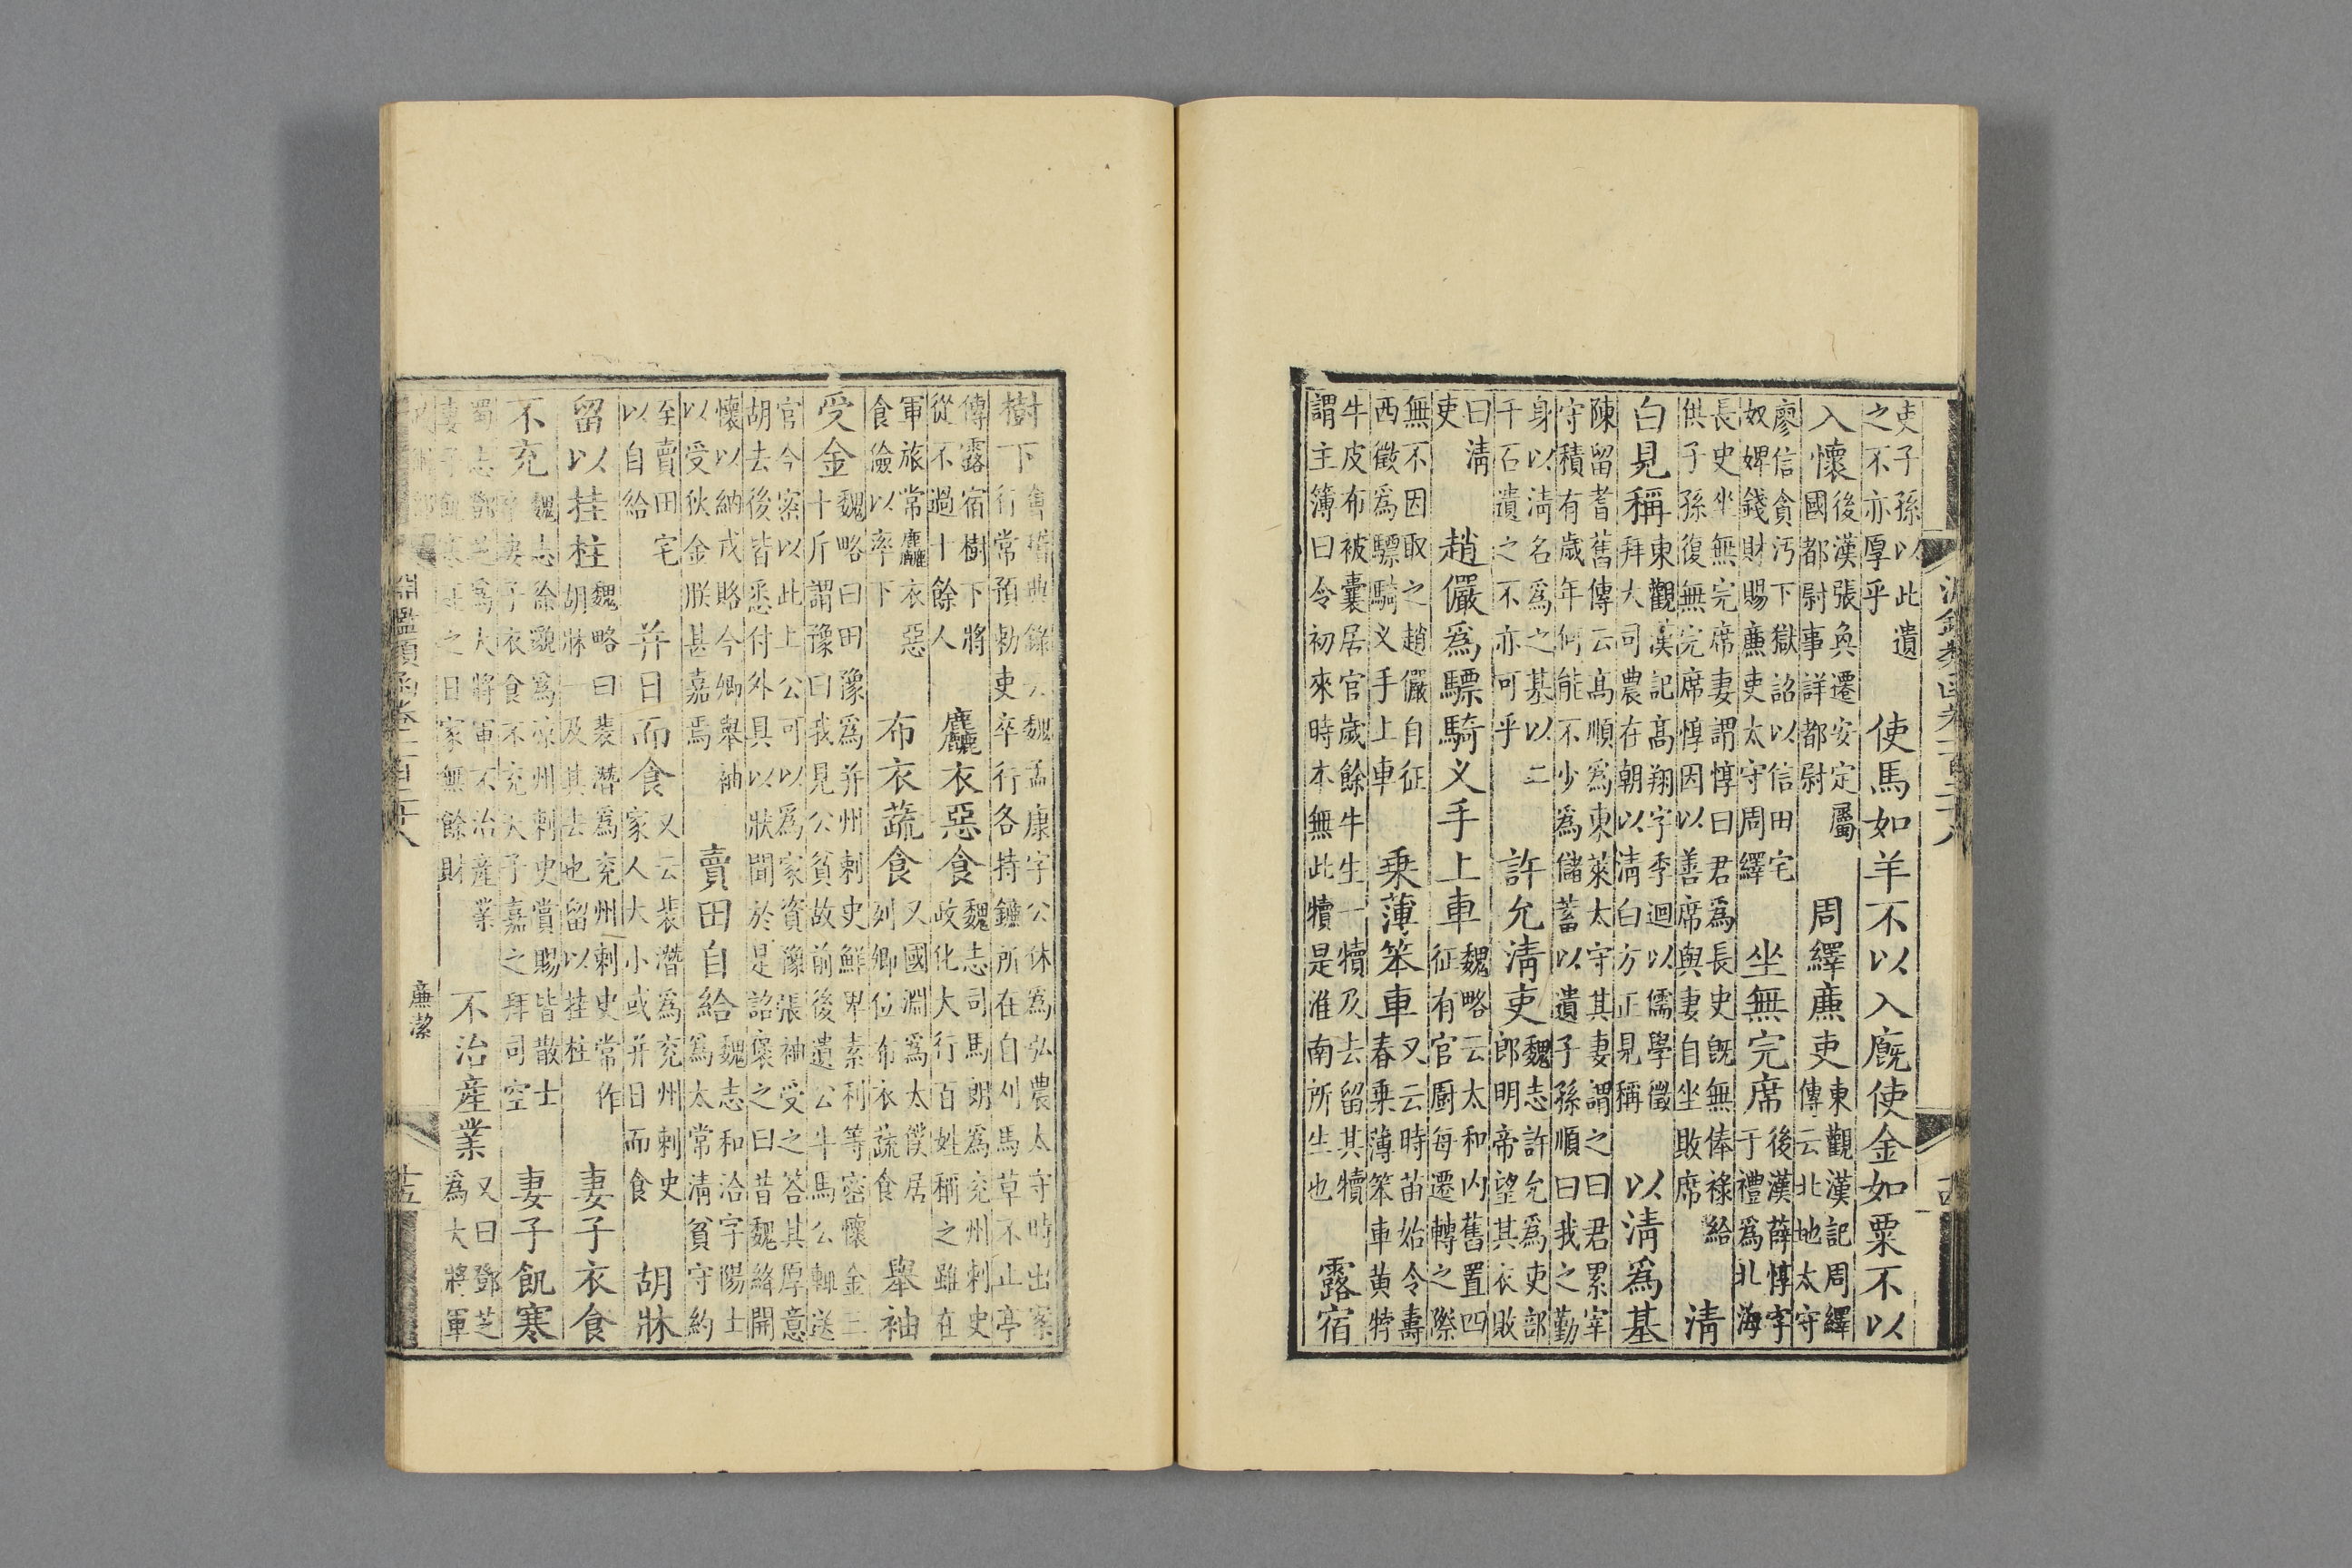 吏子孫以此遺之不亦厚乎　使馬如羊不以入廐使金如粟不以
入懷後漢張奐遷安定屬國都尉事詳都尉　周繹亷吏東觀漢記周繹傳云北地太守
廖信貪汚下獄詔以信田宅奴婢錢財賜亷吏太守周繹　坐無完席後漢薛惇字于禮爲北海
長史坐無完席妻謂惇曰君爲長史旣無俸祿給供子孫復無完席惇因以善席與妻自坐敗席　清
白見稱東觀漢記髙翔字季迴以儒學徵拜大司農在朝以清白方正見稱　以清爲基
陳留耆舊傳云髙順爲東萊太守其妻謂之曰君累宰守積有歲年何能不少爲儲蓄以遺子孫順曰我之勤
身以清名爲之基以二千石遺之不亦可乎　許允清吏魏志許允爲吏部郎明帝望其衣敗
曰清吏　趙儼爲驃騎义手上車魏略云太和以舊置四征有官厨每遷轉之際
無不因取之趙儼自征西徵爲驃騎义手上車　乗薄笨車又云時苗始令壽春乗薄笨車黄牸
牛皮布被囊居官歲餘牛生一犢乃去留其犢謂主簿曰令初來時本無此犢是淮南所生也　露宿
樹下會稽典錄云魏孟康字公休爲弘農太守時出案行常預勑吏卒行各持鐮所在自刈馬草不止亭
傳露宿樹下將從不過十餘人　麤衣惡食魏志司馬朗爲兖州刺史政化大行百姓稱之雖在
軍旅常麤衣惡食儉以率下　布衣蔬食又國淵爲太僕居列卿位布衣蔬食　舉袖
受金魏略曰田豫爲并州刺史鮮卑素利等密懷金三十斤謂豫曰我見公貧故前後遺公牛馬公輒送
官今密以此上公可以爲家資豫張袖受之答其厚意胡去後皆悉付外具以狀聞於是詔褒之曰昔魏絳開
懷以納戎賂今卿舉袖以受狄金朕甚嘉焉　賣田自給魏志和洽字陽士爲太常清貧守約
至賣田宅以自給　并日而食又云裴潛爲兖州刺史家人大小或并日而食　胡牀
留以挂柱魏略曰裴潛爲兖州刺史常作胡牀一及其去也留以挂柱　妻子衣食
不充魏志徐邈爲凉州刺史賞賜皆散士卒妻子衣食不充天子嘉之拜司空　妻子飢寒
蜀志鄧芝爲大將軍不治産業妻子飢寒死之日家無餘財　不治産業又曰鄧芝爲大將軍
淵鑑類函卷一百二十八　亷潔　十五